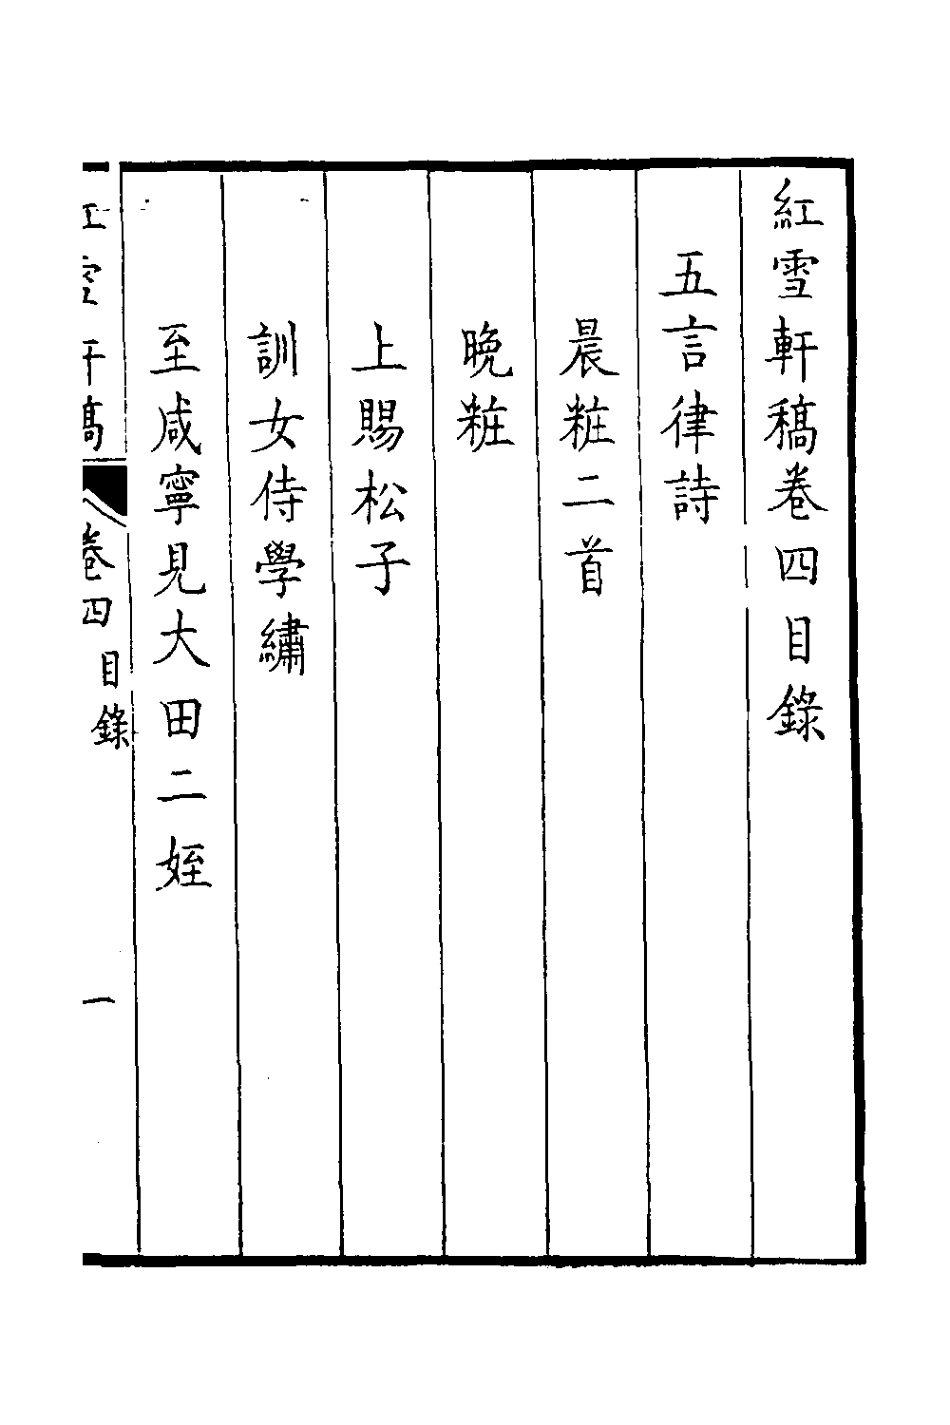 紅雪軒稿卷四目錄
五言律詩
晨粧二首
晩粧
上賜松子
訓女侍學繡
至咸寧見大田二姪
紅雪軒稿
卷四
目錄
一